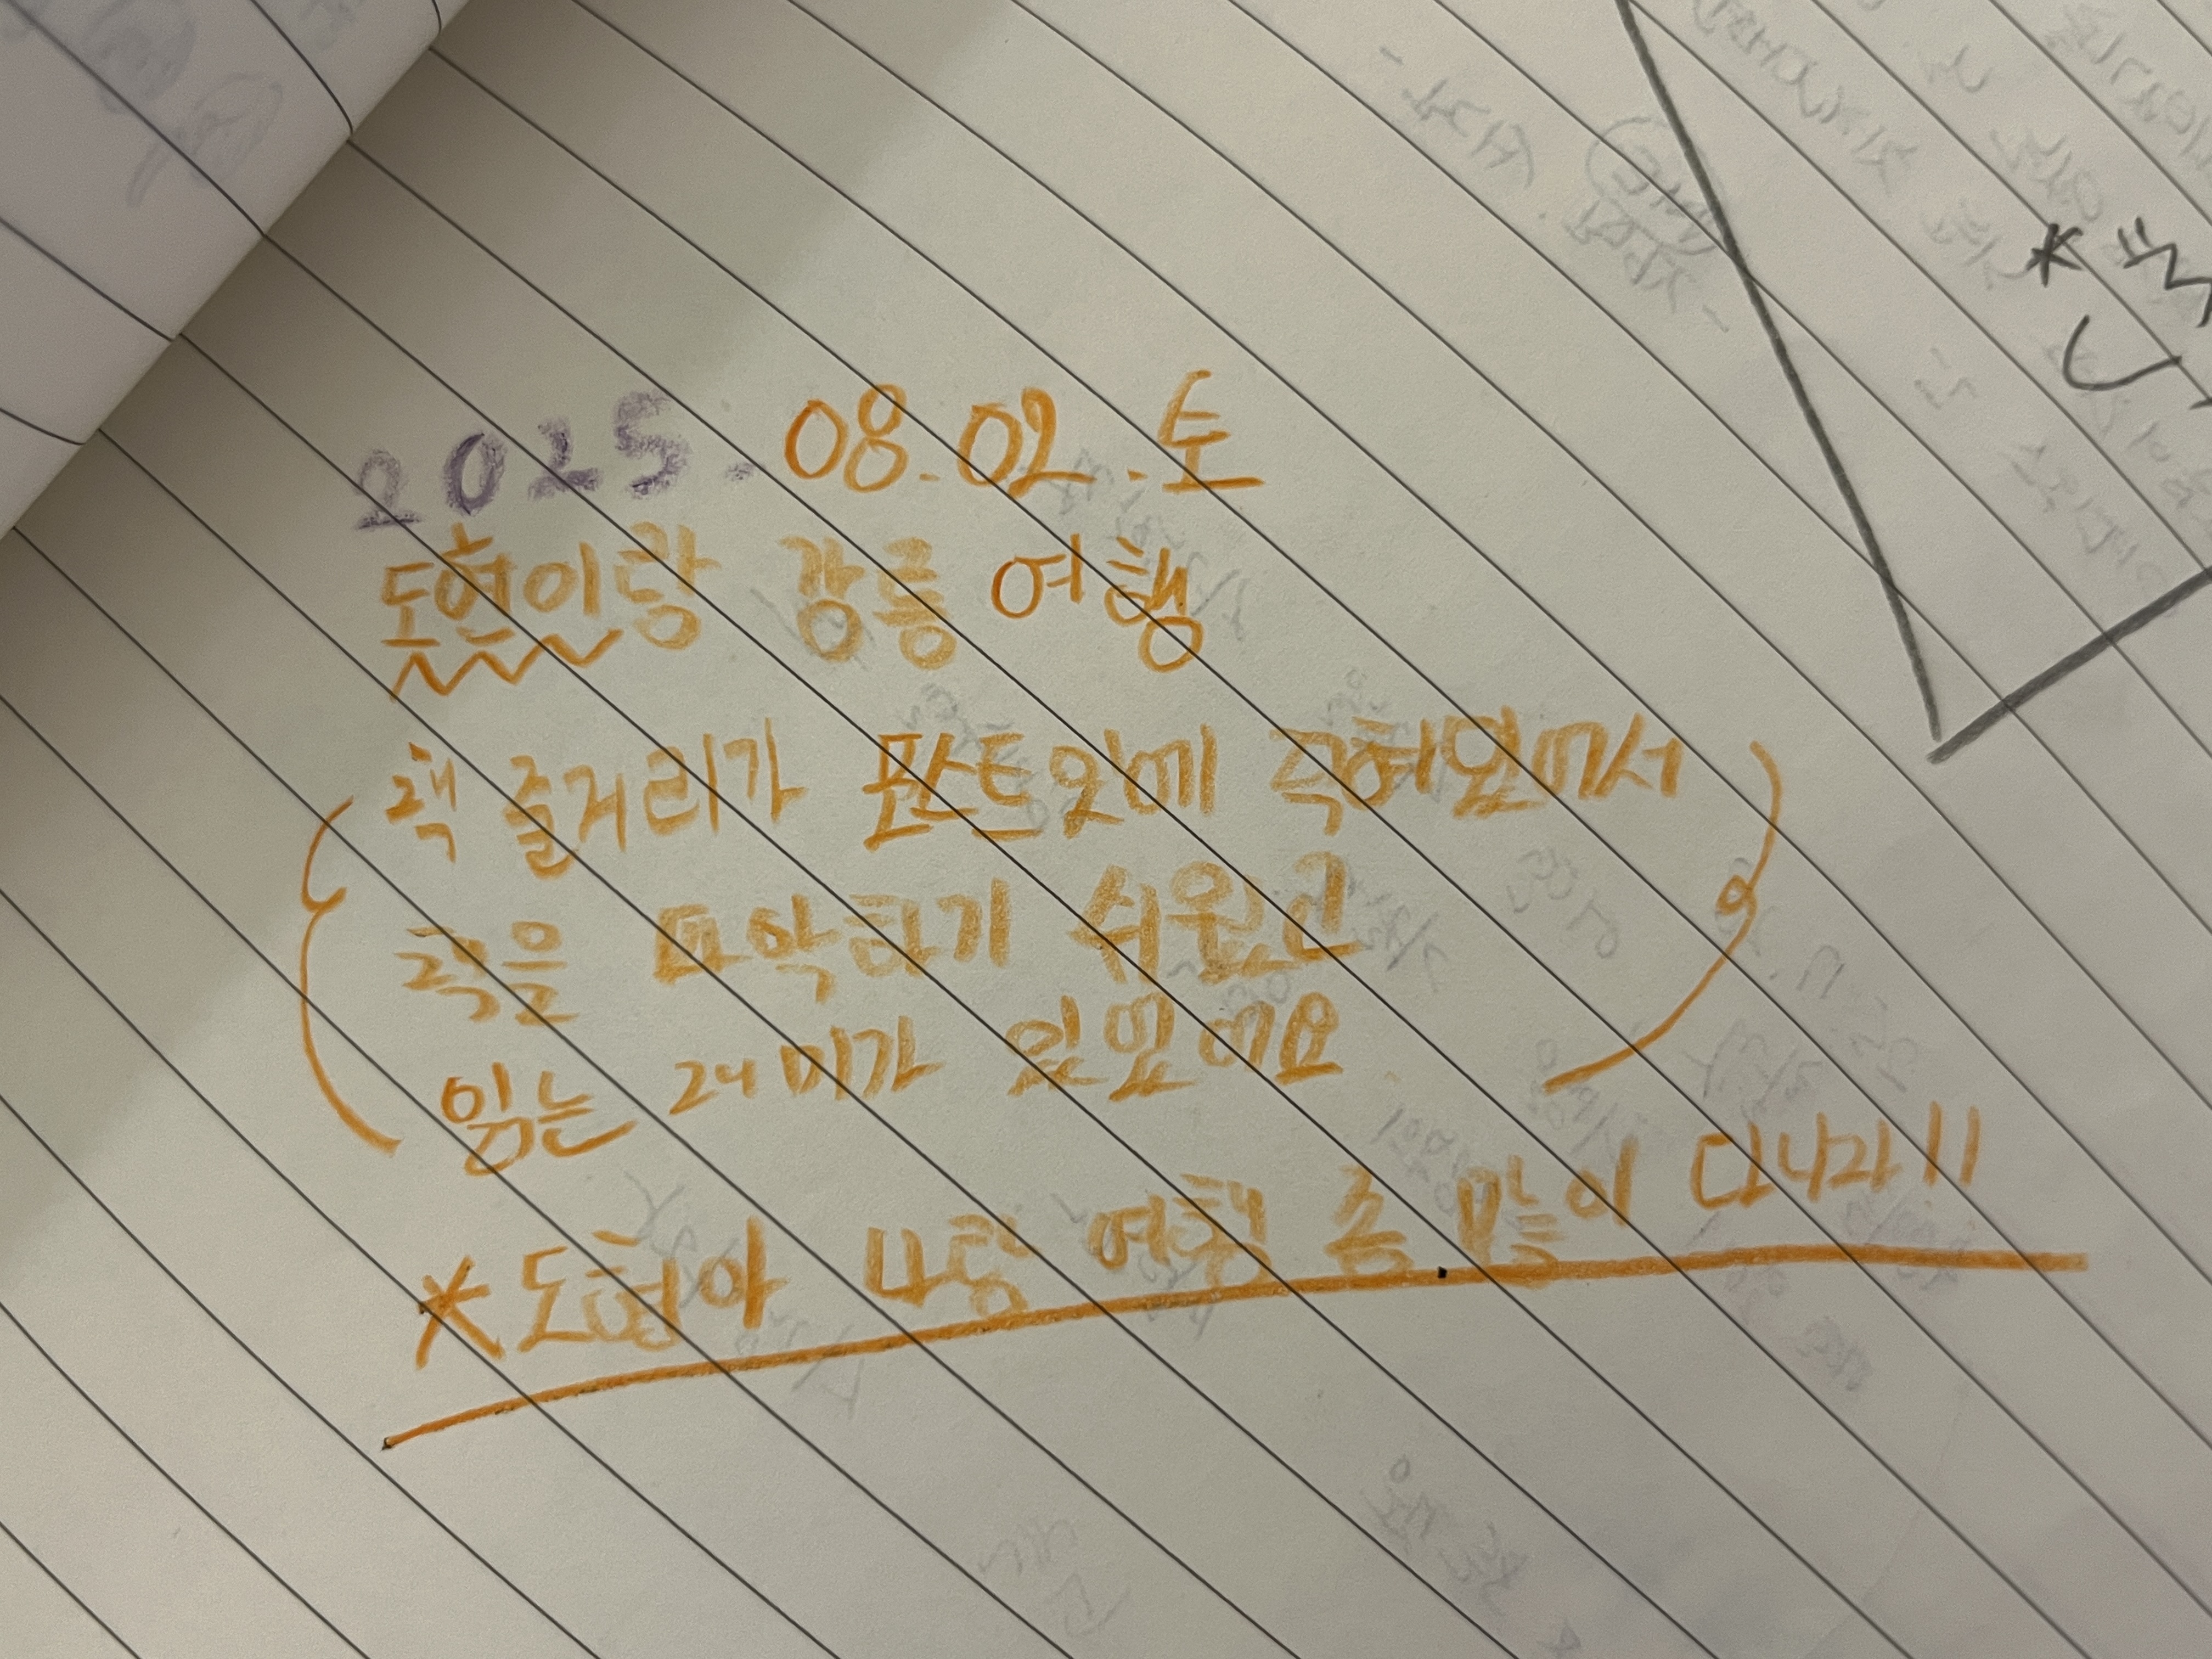 2025. 08.02.토
도현이랑 강릉 여행
책 줄거리가 포스트잇에 적혀있어서
책을 파악하기 쉬웠고
읽는 재미가 있었어요
*도현아 나랑 여행 좀 많이 다니자!!